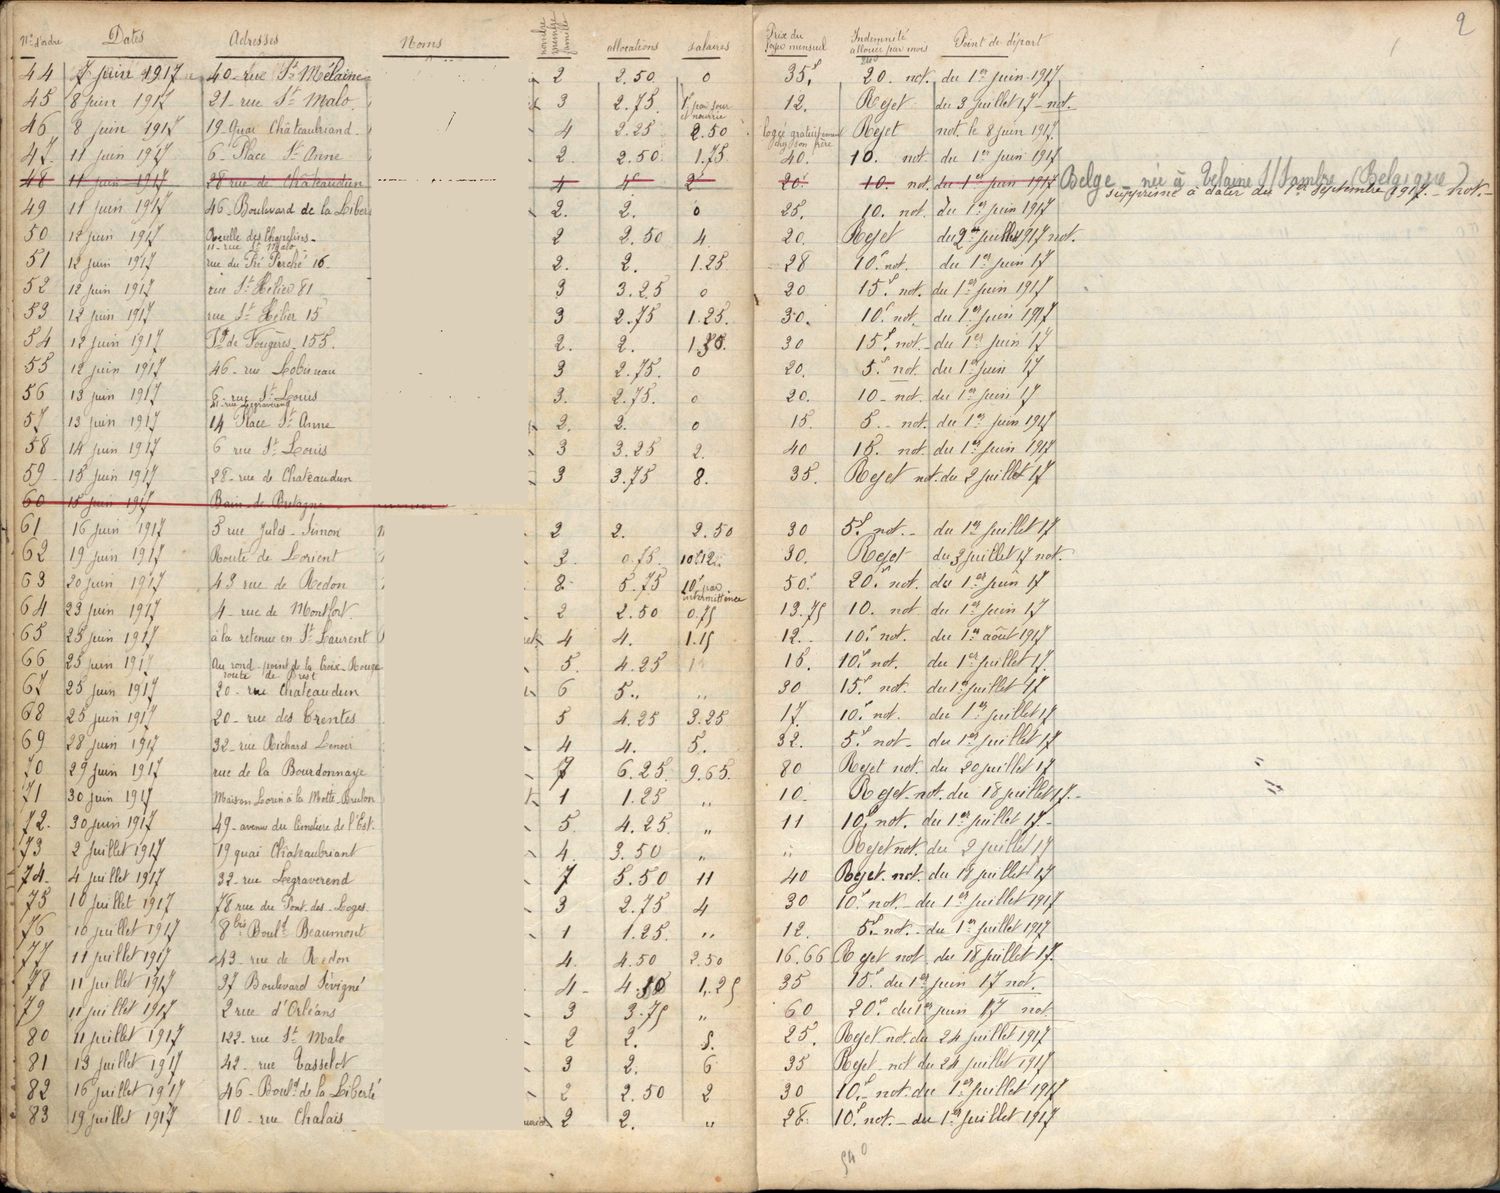 2
Nos d'ordre Dates Adresses Noms nombre membre famille allocations salaires Prix du loyer mensuel Indemnité allouée par mois Point de départ
44 7 juin 1917 40 - rue St Mélaine 2 2.50 0 35f 20. not. du 1er juin 1917
45 8 juin 1917 21 - rue St Malo 3 2.75 1f par jour et nourrie 12. Rejet du 3 juillet 17 - not.
46 8 juin 1917 19 - Quai Châteaubriand 4 2.25 2.50 logée gratuitement chez son frère Rejet not. le 8 juin 1917.
47 11 juin 1917 6 - Place St Anne 2. 2.50 1.75 40. 10. not du 1er juin 1917
48 11 juin 1917 28 rue de Châteaudun 4 4 2 20 10. not. du 1er juin 1917 Belge - née à Velaine S/Sambre (Belgique)
supprimé à dater du 1er Septembre 1917. - not. -
49 11 juin 1917 46 - Boulevard de la Liberté 2. 2. 0 25. 10. not. du 1er juin 1917
50 12 juin 1917 Ruelle des Chapelines - 2 2.50 4. 20. Rejet du 2 juillet 1917 not.
11 - rue St Malo
51 12 juin 1917 rue du Pré Perché 16 2. 2. 1.25 28 10f not. du 1er juin 17
52 12 juin 1917 rue St Hélier 81 3 3.25 0 20 15f not. du 1er juin 1917
53 12 juin 1917 rue St Hélier 15 3 2.75 1.25. 30. 10f not. du 1er juin 1917
54 12 juin 1917 Fg de Fougères 155. 2. 2. 30 15f not. - du 1er juin 17
55 12 juin 1917 46 - rue Lobineau 3 2.75. 0 20. 5f not. du 1er juin 17
56 13 juin 1917 6 - rue St Louis 3. 2.75. 0 20. 10 - not. du 1er juin 17
11 - rue Legraverend
57 13 juin 1917 14 Place St Anne 2. 2. 0 15. 5. - not. du 1er juin 1917
58 14 juin 1917 6 rue St Louis 3 3.25 2. 40 15. not. du 1er juin 1917
59 15 juin 1917 28 - rue de Chateaudun 3 3.75 8. 35. Rejet not. du 2 juillet 17
60 15 juin 1917 Bain - de Bretagne
61 16 juin 1917 5 rue Jules - Simon 2 2. 2.50 30 5f not. - du 1er juillet 17
62 19 juin 1917 Route de Lorient 0.75. 30. Rejet du 3 juillet 17 not.
63 20 juin 1917 43 rue de Redon 8 5.75 10f par intermittence 50f 20f not. du 1er juin 17
64 23 juin 1917 4 - rue de Montfort. 2 2.50 0.75 13.75 10. not du 1er juin 17
65 25 juin 1917 à la retenue en St Laurent 4 4. 1.15 12. 10f not. du 1er août 1917
66 25 juin 1917 Au rond - point de la Croix - Rouge 5. 4.25 15. 10f not. du 1er juillet 17.
route de Brest
67 25 juin 1917 20 - rue Chateaudun 6 5 „ „ 30 15f not. du 1er juillet 17
68 25 juin 1917 20 - rue des Trentes 5 4.25 3.25 17. 10f not. du 1er juillet 17
69 28 juin 1917 32 - rue Richard Lenoir 4 4. 5. 32. 5f not - du 1er juillet 17.
70 29 juin 1917 rue de la Bourdonnaye 7 6.25. 9.65. 80 Rejet not. du 20 juillet 17
71 30 juin 1917 Maison Lorin à la Motte - Brulon 1 1.25 „ 10. Rejet - not. du 18 juillet 17. -
72. 30 juin 1917 49 - avenue du Cimetière de l'Est. 5. 4.25. „ 11 10f not. du 1er juillet 17. -
73 2 juillet 1917 19 quai Châteaubriant 4. 3.50 „ „ Rejet not. du 2 juillet 17
74. 4 juillet 1917 32 - rue Legraverend 7 5.50 11 40 Rejet - not. du juillet 17
75 10 juillet 1917 78 rue du Pont - des - Loges. 3 2.75 4 30 10f not. - du 1er juillet 1917
76 10 juillet 1917 8 bis Boult Beaumont 1 1.25. „ 12. 5f not. - du 1er juillet 1917
77 11 juillet 1917 43 - rue de Redon 4. 4.50 2.50 16.66 Rejet not. du 18 juillet 17.
78 11 juillet 1917 37 Boulevard Sévigné 4 - 1.25 35 15f du 1er juin 17 not.
79 11 juillet 1917 2 rue d'Orléans 3 3.75 „ 60 20f du 1er juin 17 not
80 11 juillet 1917 122 - rue St Malo 2 2. 5. 25. Rejet not. du 24 juillet 1917
81 13 juillet 1917 42 - rue Vasselot 3 2. 6 35 Rejet - not du 24 juillet 1917
82 16 juillet 1917 46 - Boult de la Liberté 2 2.50 2 30 10f - not. du 1er juillet 1917
83 19 juillet 1917 10 - rue Chalais 2 2. „ 28. 10f not. - du 1er juillet 1917
540